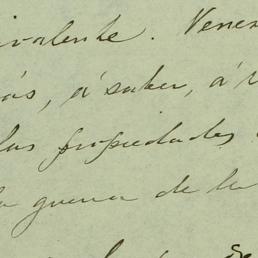 ivalente. Venez
ás, á saber, á
las propiedades
la guerra de la